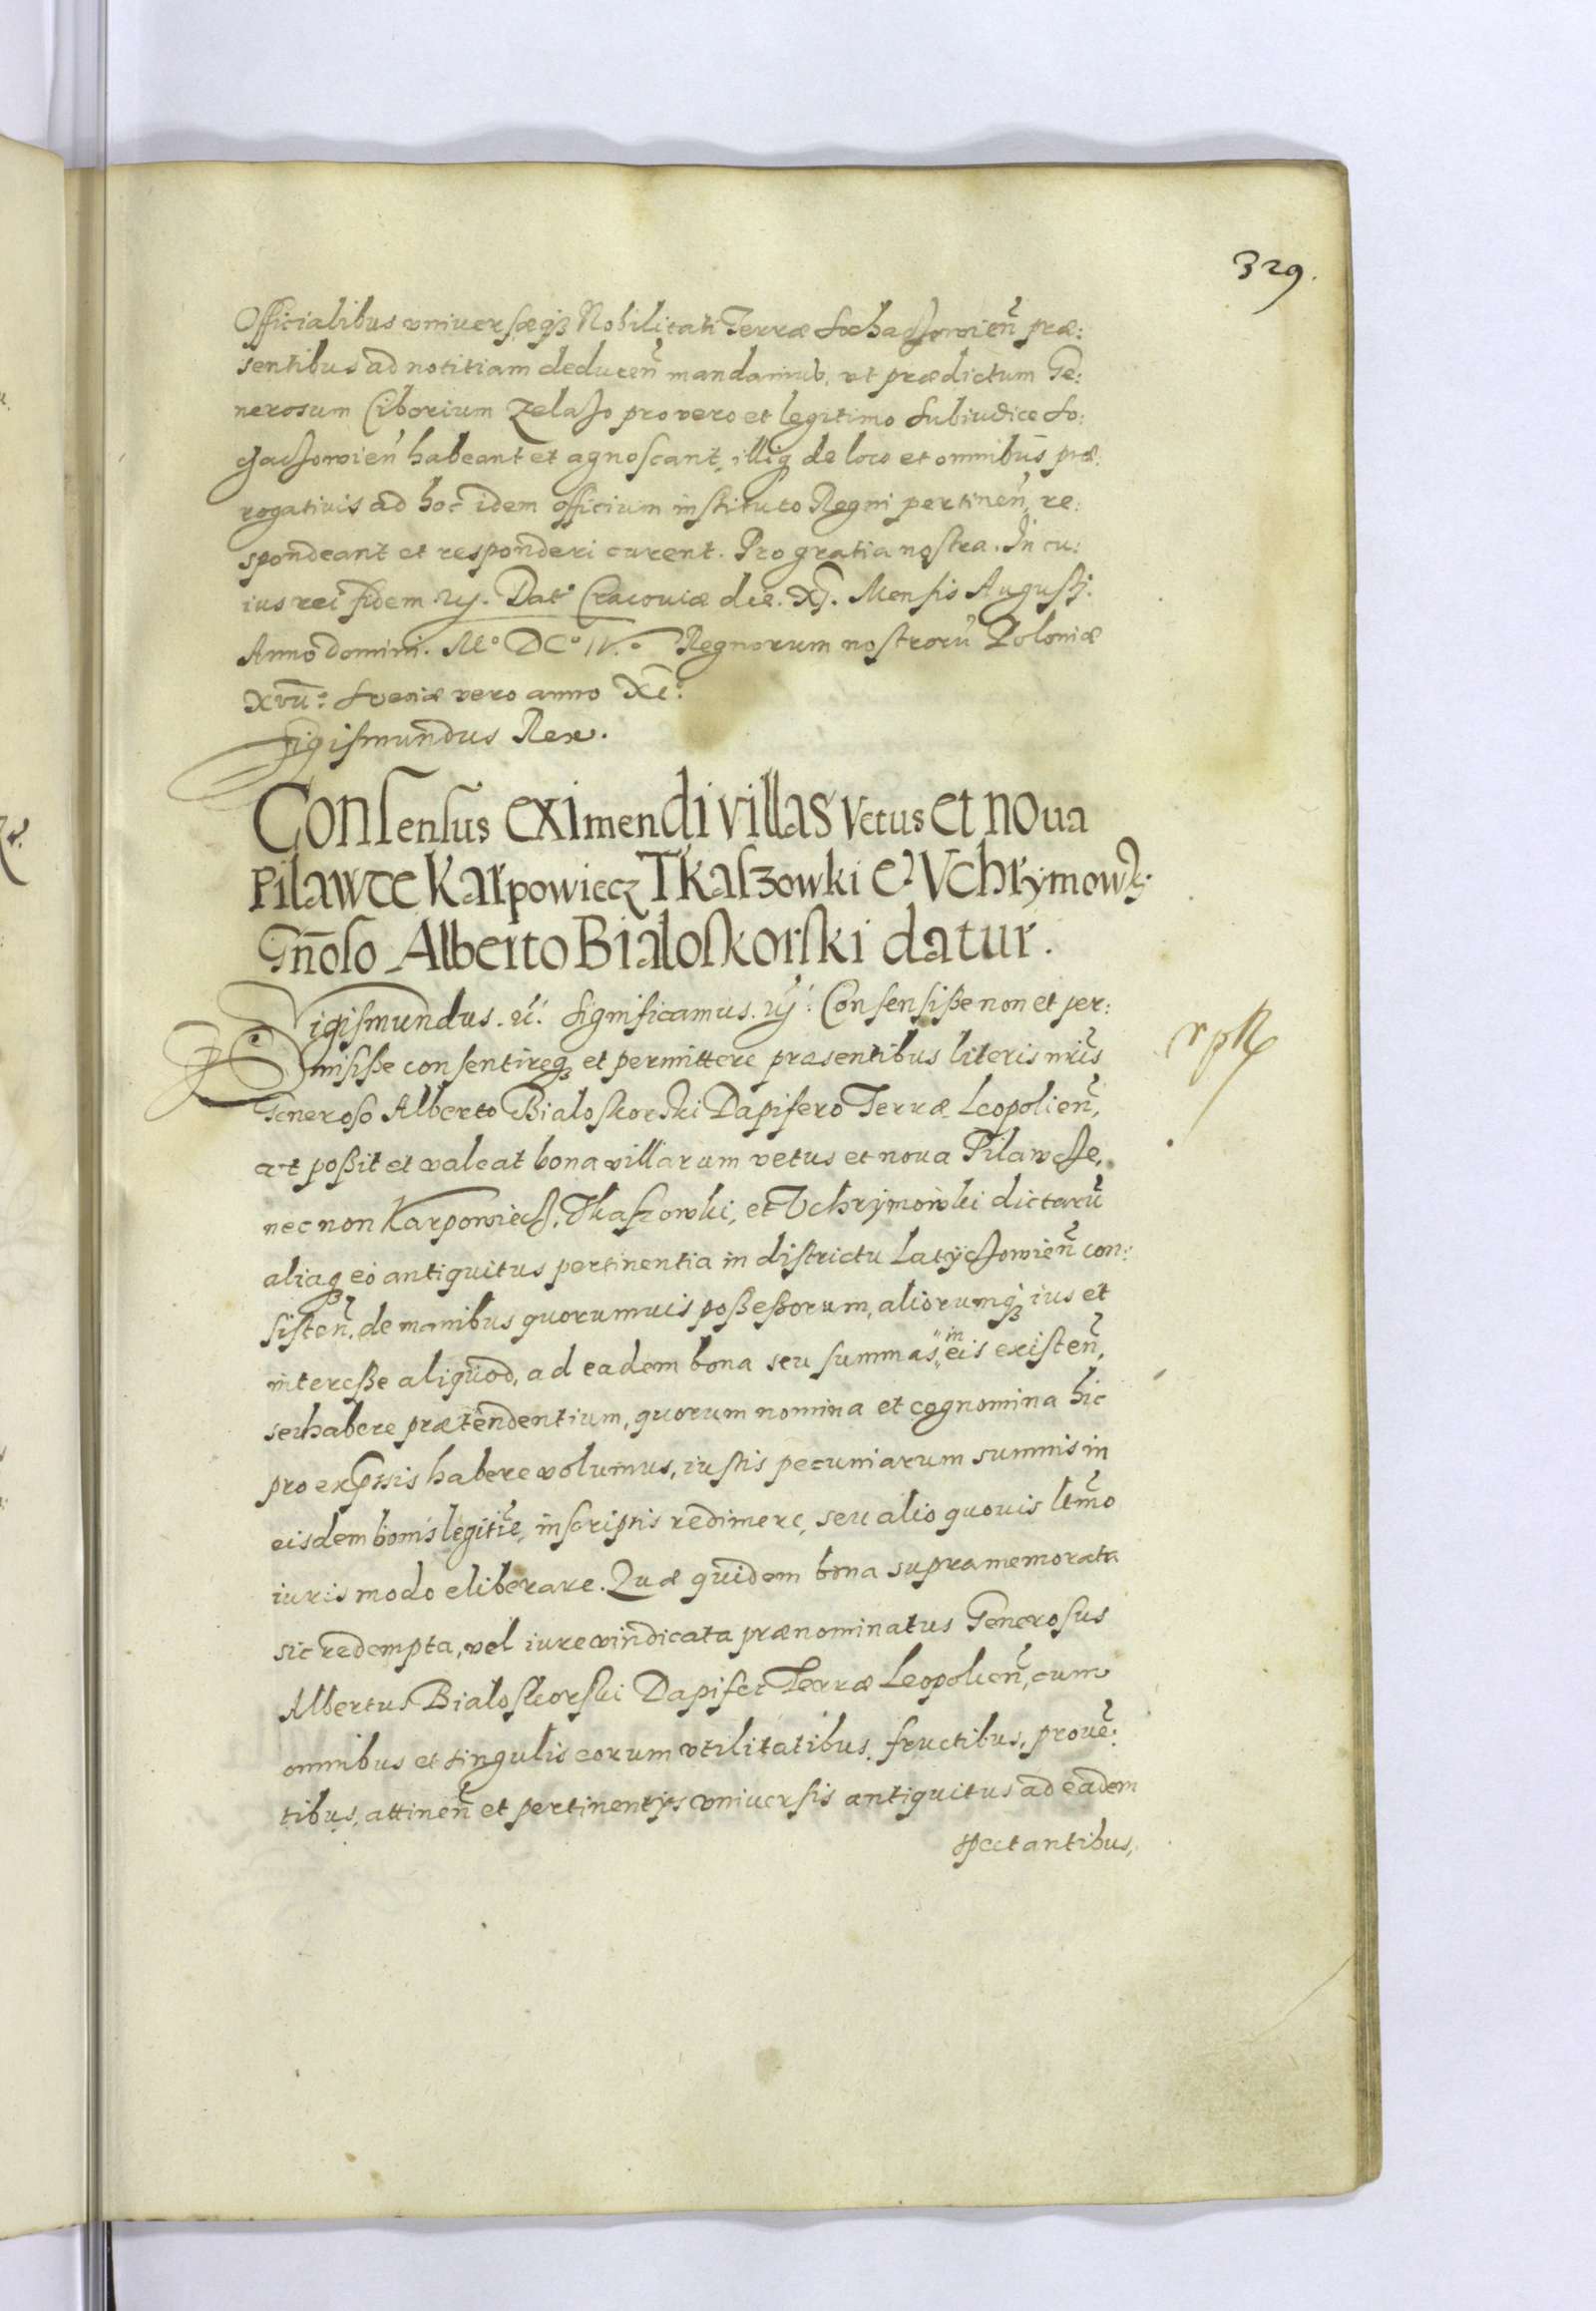 329.
Officialibus vniuersæq3 Nobilitati Terræ Sochaczowien̄ præ:
sentibus ad notitiam deducen̄ mandamus, vt prædictum Ge:
nerosum Ciborium Zelazo pro vero et legitimo Subiudice So:
chaczowien̄ habeant et agnoscant, illiq3 de loco et omnibus præ:
rogatiuis ad hoc idem officium instituto Regni pertinen̄, re:
spondeant et responderi curent. Pro gratia nostra. In cu:
ius rei fidem Dat: Cracouiæ die. XI. Mensis Augusti.
Anno domini. Mo DCo IV.o Regnorum nostrorū Poloniæ
XVII: Sveciæ vero anno XI:
Sigismundus Rex.
Consensus eximendi villas Vetus et noua
Pilawce Karpowiecz Tkaszowki et Vchrymowki
Gn̄oso Alberto Bialoskorski datur.
Sigismundus. Significamus. Consensisse nos et per:
misisse consentireq3 et permittere præsentibus literis nr̄is
Generoso Alberto Bialoskorski Dapifero Terræ Leopolien̄,
ut possit et valeat bona villarum vetus et noua Pilawcze,
nec non Karpowiecz, Tkaszowki, et Vchrymowki dictarū
aliaq3 eò antiquitus pertinentia in districtu Latyczowien̄ con:
sisten̄, de manibus quorumuis possessorum, aliorumq3 ius et
interesse aliquod, ad eadem bona seu summas in eis existen̄,
se habere prætendentium, quorum nomina et cognomina hic
pro expssis habere volumus, iustis pecuniarum summis in
eisdem bonis legitīe, inscriptis redimere, seu alio quouis ltmō
iuris modo eliberare. Quæ quidem bona supra memorata
sic redempta, vel iure vindicata prænominatus Generosus
Albertus Bialoskorski Dapifer Terræ Leopolien̄, cum
omnibus et singulis eorum vtilitatibus, fructibus, prouē:
tibus, attinen̄ et pertinentijs vniuersis antiquitus ad eadem
spectantibus,